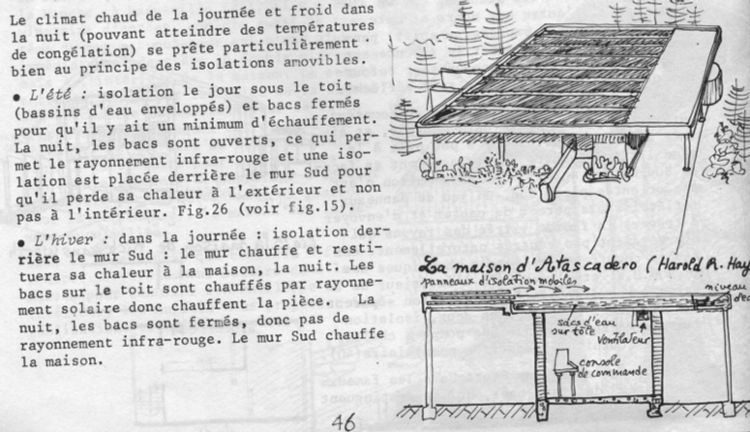 Le climat chaud de la journée et froid dans
la nuit (pouvant atteindre des températures
de congélation) se prête particulièrement
bien au principe des isolations amovibles.
• L'été : isolation le jour sous le toit
(bassins d'eau enveloppés) et bacs fermés
pour qu'il y ait un minimum d'échauffement.
La nuit, les bacs sont ouverts, ce qui per-
met le rayonnement infra-rouge et une iso-
lation est placée derrière le mur Sud pour
qu'il perde sa chaleur à l'extérieur et non
pas à l'intérieur. Fig.26 (voir fig.15).
• L'hiver : dans la journée : isolation der-
rière le mur Sud : le mur chauffe et resti-
tuera sa chaleur à la maison, la nuit. Les
bacs sur le toit sont chauffés par rayonne-
ment solaire donc chauffent la pièce. La
nuit, les bacs sont fermés, donc pas de
rayonnement infra-rouge. Le mur Sud chauffe
la maison.
La maison d'Atascadero (Harold R. Hay
panneaux d'isolation mobiles
niveau
d'ea
sacs d'eau
sur tôle
ventilateur
console
de commande
46